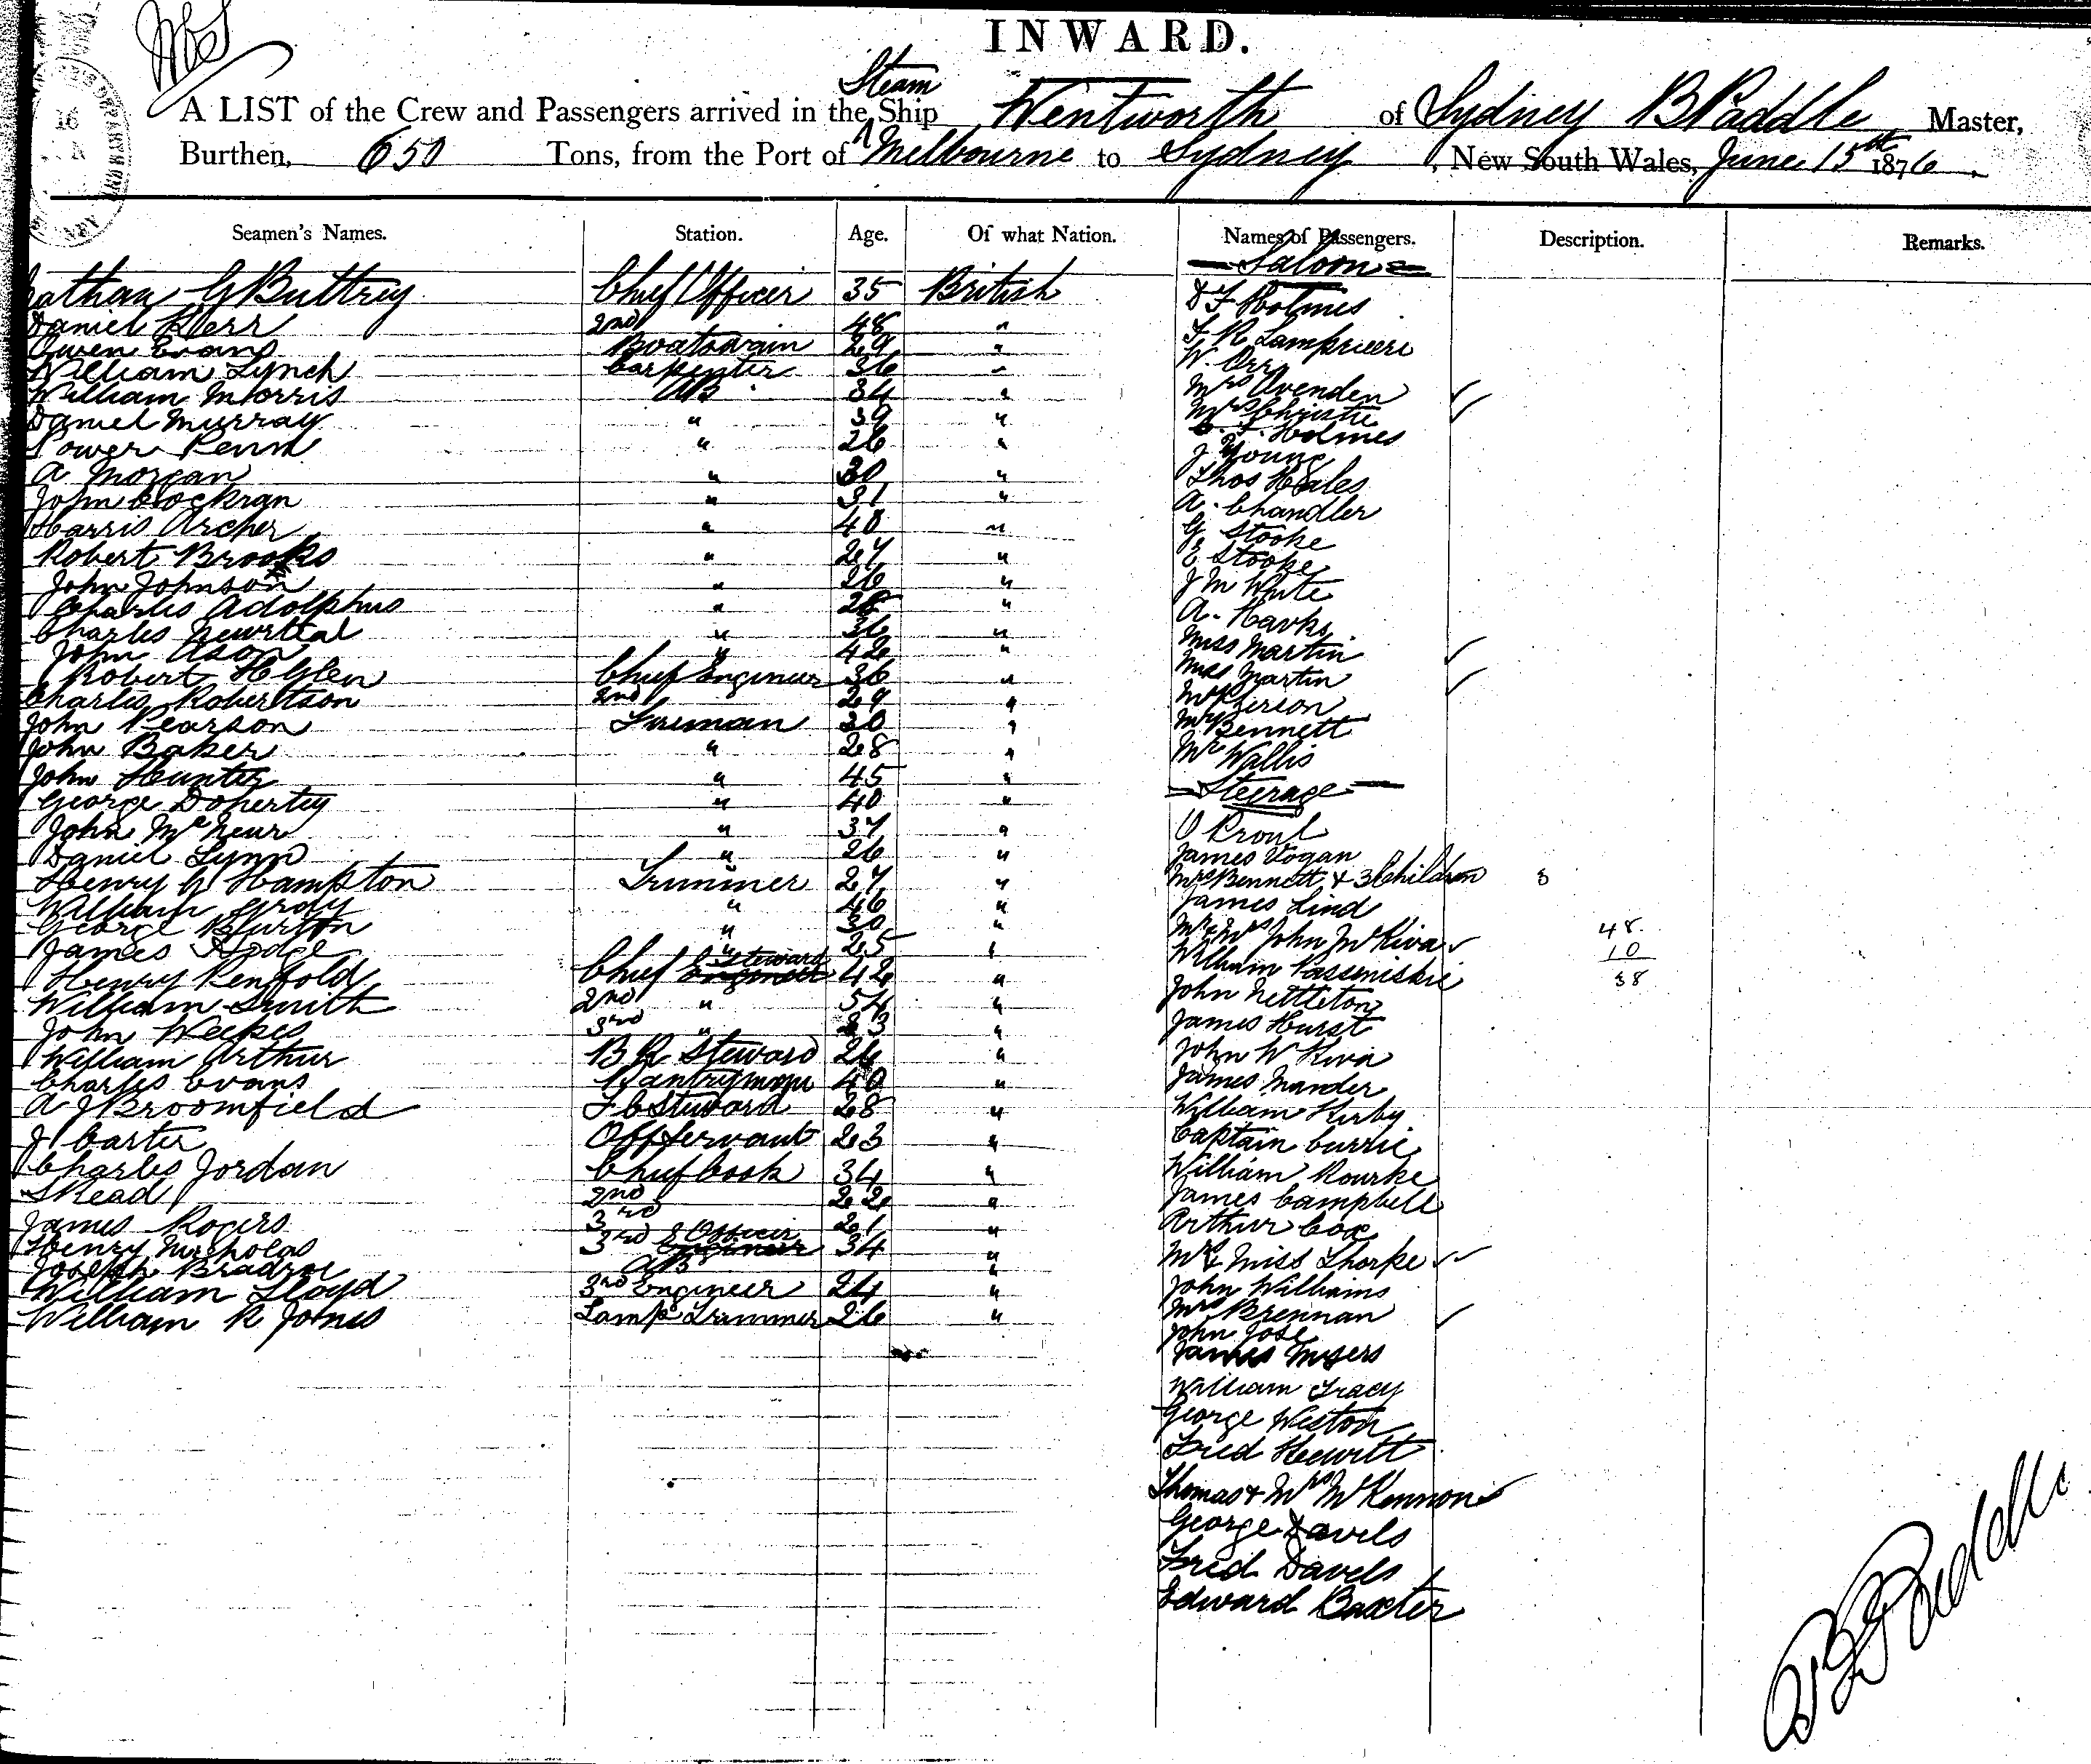 INWARD.
Steam
A LIST of the Crew and Passengers arrived in the Ship Wentworth of Sydney B Paddle Master,
Burthen, 650 Tons, from the Port of Melbourne to Sydney, New South Wales, June 15th 1876.
Seamen's Names. Station. Age. Of what Nation. Names of Passengers. Description. Remarks.
Saloon
G Buttrey Chief Officer 35 British
Daniel Kerr 2nd 48 "
Owen Evans Boatswain 29 "
William Lynch Carpenter 36 "
William Morris AB 34 "
Daniel Murray " 39 "
Power 26 "
A Morgan " 30 "
John Cockran " 31 "
Harris Archer " 40 "
Robert Brooks " 27 "
John Johnson " 26 "
Charles Adolphus " 28 "
Charles " 36 "
John Ason " 42 "
Robert H Glen Chief Engineer 36 "
Charles Robertson 2nd 29 "
John Pearson Fireman 30 "
John Baker " 28 "
John Hunter " 45 "
George Doherty " 40 "
John " 37 "
Daniel Lynn " 26 "
Henry G Hampton Trimmer 27 "
William Grady " 46 "
George Burton " 30 "
James Hodge " 25 "
Henry Penfold Chief Steward 42 "
William Smith 2nd " 54 "
John Weekes 3rd " 23 "
William Arthur B R Steward 26 "
Charles Evans Pantryman 40 "
A J Broomfield F C Steward 28 "
J Carter Off Servant 23 "
Charles Jordan Chief Cook 34 "
S Read 2nd 22 "
James Rogers 3rd 21 "
Henry Nicholas 3rd Officer 34 "
Joseph AB "
William Lloyd 3rd Engineer 24 "
William R Jones Lamp Trimmer 26 "
Holmes
W. Orr
Mrs Ovenden
Mrs Christie
Holmes
J Young
Thos Hales
A. Chandler
G Stooke
E Stooke
J M White
A. Hawks
Miss Martin
Miss Martin
Bennett
Mr Wallis
Steerage
James Vogan
Mrs Bennett & 3 Children 3
James Lind
Mr & Mrs John McKiva 48
William 10
John Nettleton 38
James Hurst
John
James Mander
William Kirby
Captain Currie
William Rourke
James Campbell
Arthur Cox
Mrs & Miss Thorpe
John Williams
Mrs Brennan
John Jose
James Myers
William Tracy
George Weston
Fred Hewitt
Thomas & Mrs McKennon
George Davels
Fred Davels
Edward Baxter